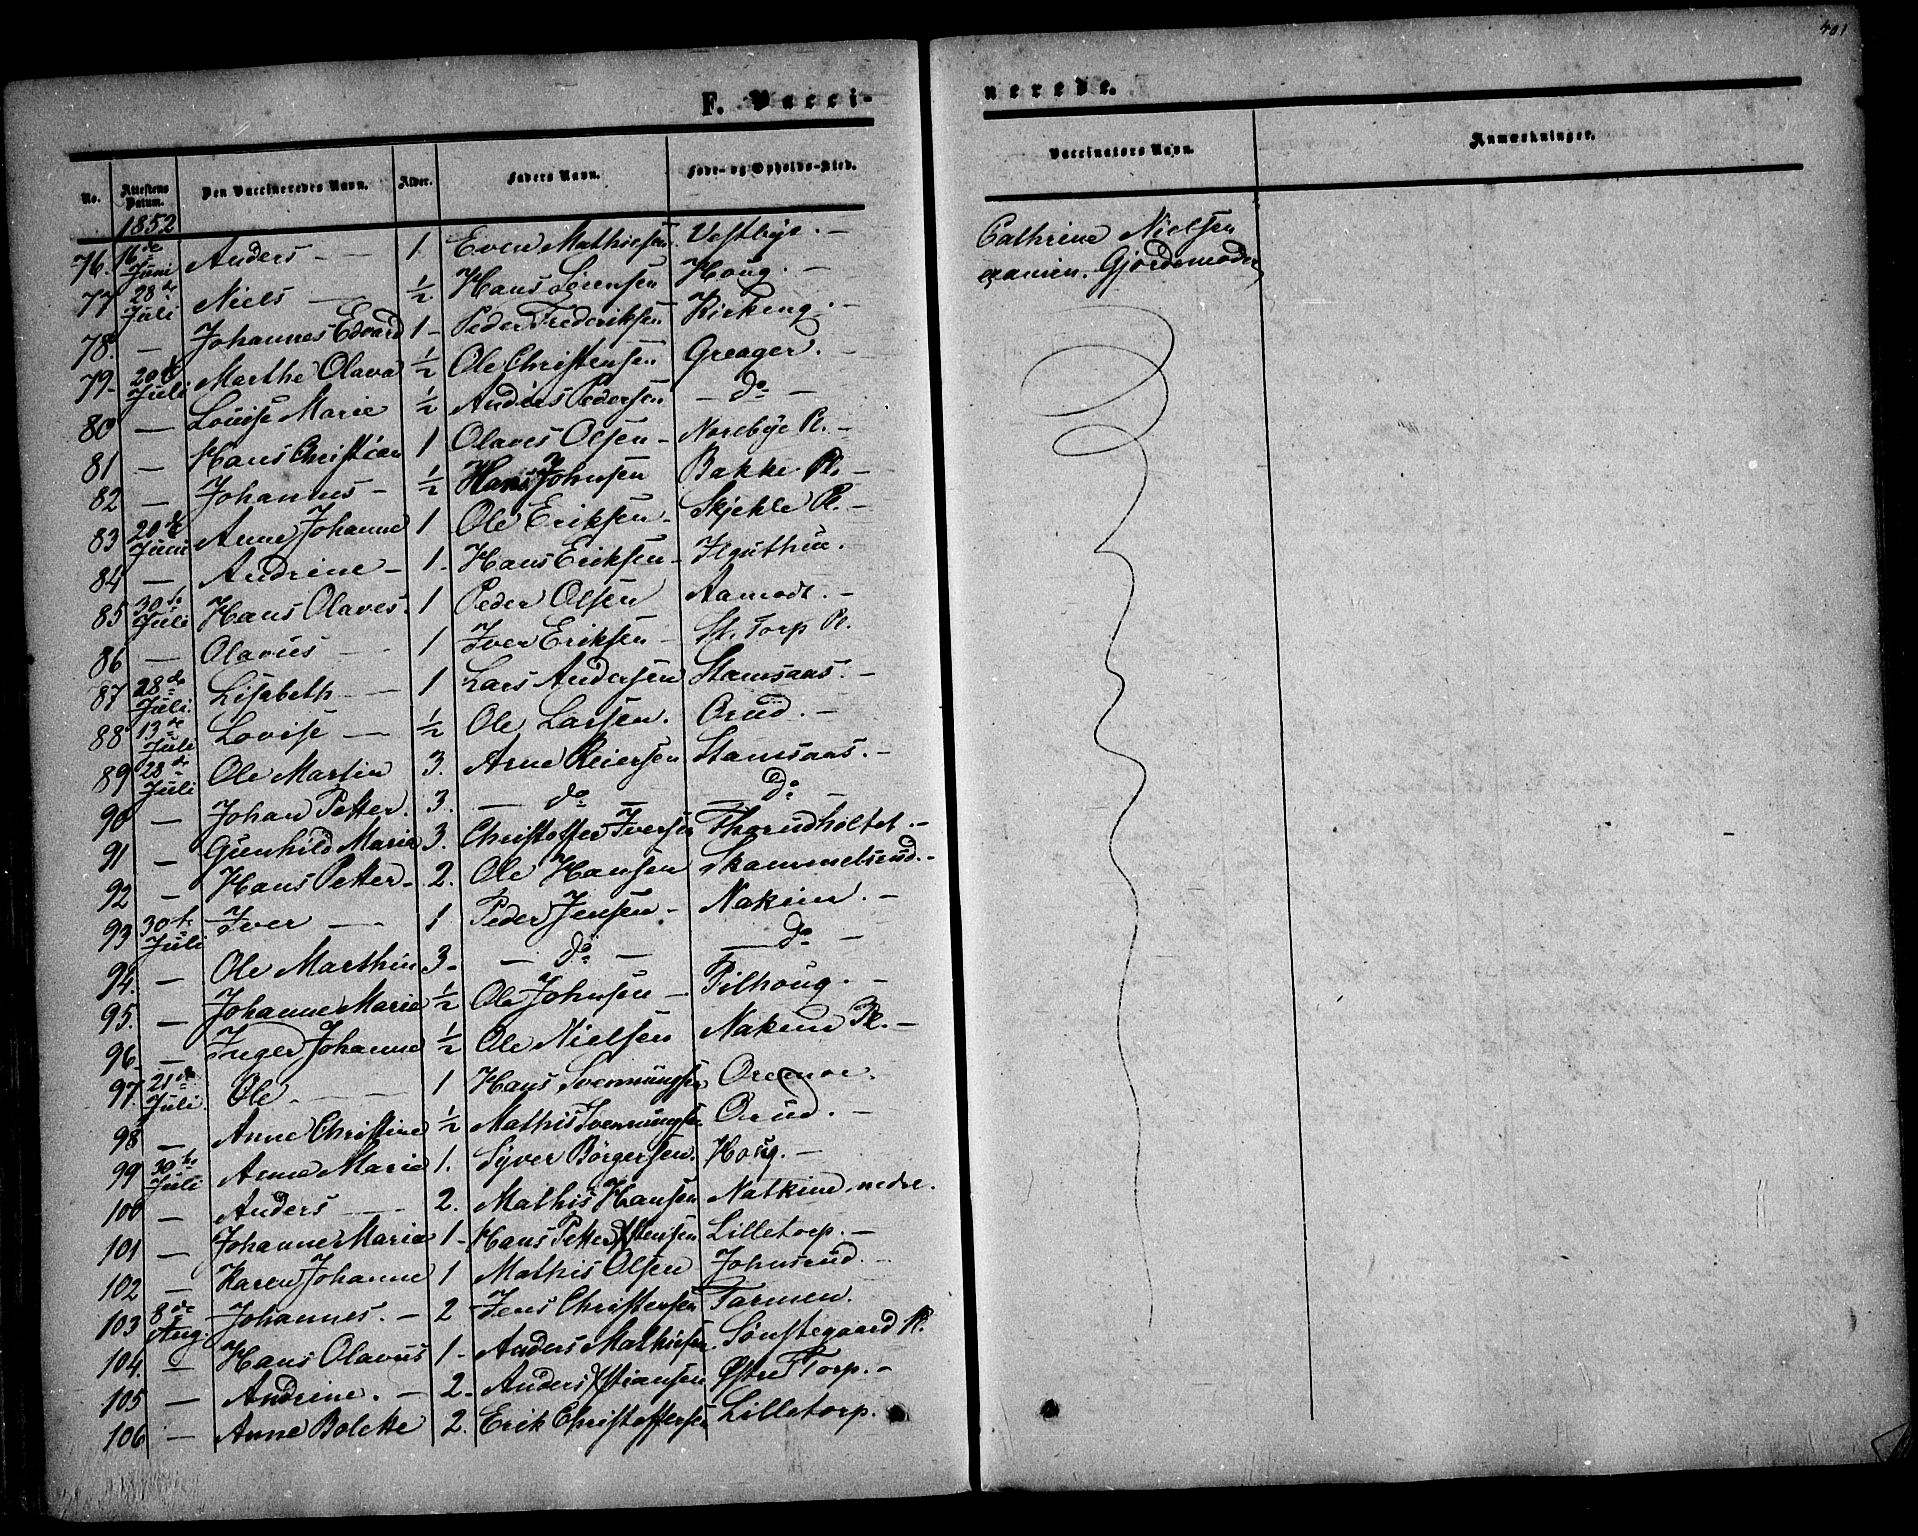 401
F. Vacci-
nerede.
No. Attestens Datum. Den Vaccineredes Navn. Alder. Faders Navn. Føde- og Opholds-Sted. Vaccinators Navn. Anmærkninger.
1852
76. 16de Juni Anders — 1. Even Mathiesen Vestbye. — Cathrine Nielsen
77 28de Juli Niels — ½ Hans Sørensen Houg. — examin. Gjordemoder
78. — Johannes Edvard 1 - Peder Frederiksen Kirkeng. —
79 - 20de Juli Marthe Olava ½ Ole Christensen Greager. —
80 — Louise Marie ½ Anders Pedersen — do —
81 — Hans Christian 1 Olaves Olsen - Norebye Pl. -
82 — Johannes - ½ Hans Johnsen Bakke Pl. -
83 20de Juni Anne Johanne 1 Ole Eriksen - Skjehle Pl. -
84 — Andrine - 1. Hans Eriksen -
85 30te Juli Hans Olaves. 1 Peder Olsen Aamodt. -
86 — Olavus — 1 Iver Eriksen - St. Torp Pl.
87 28de Juli Lisebeth — 1 Lars Andersen Stamsaas. -
88 13de Juli Lovise — ½ Ole Larsen. Orud. -
89 28de Juli Ole Martin 3. Arne Reiersen Stamsaas. -
90 — Johan Petter. 3. — do — — do
91 — Gunhild Marie 3. Christoffer Iversen Thorudholtet. -
92 — Hans Petter - 2. Ole Hansen Skammelsrud. -
93 30te Juli Iver — 1 Peder Jensen. - Nakim. -
94. — Ole Marthin 3 - — do — — do —
95. — Johanne Marie ½ Ole Johnsen — Pilhoug. —
96 — Inger Johanne ½ Ole Nielsen Nakim Pl. —
97. 21de Juli Ole — 1 Hans Svennungsen Oremoe.
98 — Anne Christine ½ Mathis Svennungsen Orud. -
99 30te Juli Anne Marie 1. Syver Börgersen. Houg. -
100 — Anders — 2. Mathis Hansen Natkim nedre.
101 — Johanne Maria 1 - Hans Petter Xstensen Lilletorp. -
102 — Karen Johanne 1 Mathis Olsen Johnsrud. -
103 8de Aug. Johannes. - 2 Jens Christensen Tarmen.
104. — Hans Olavus 1 - Anders Mathiesen Sønstegaard Pl.
105 — Andrine. - 2. Anders Xstiansen Østre Torp. -
106 — Anne Bolette 2. Erik Christoffersen Lilletorp.